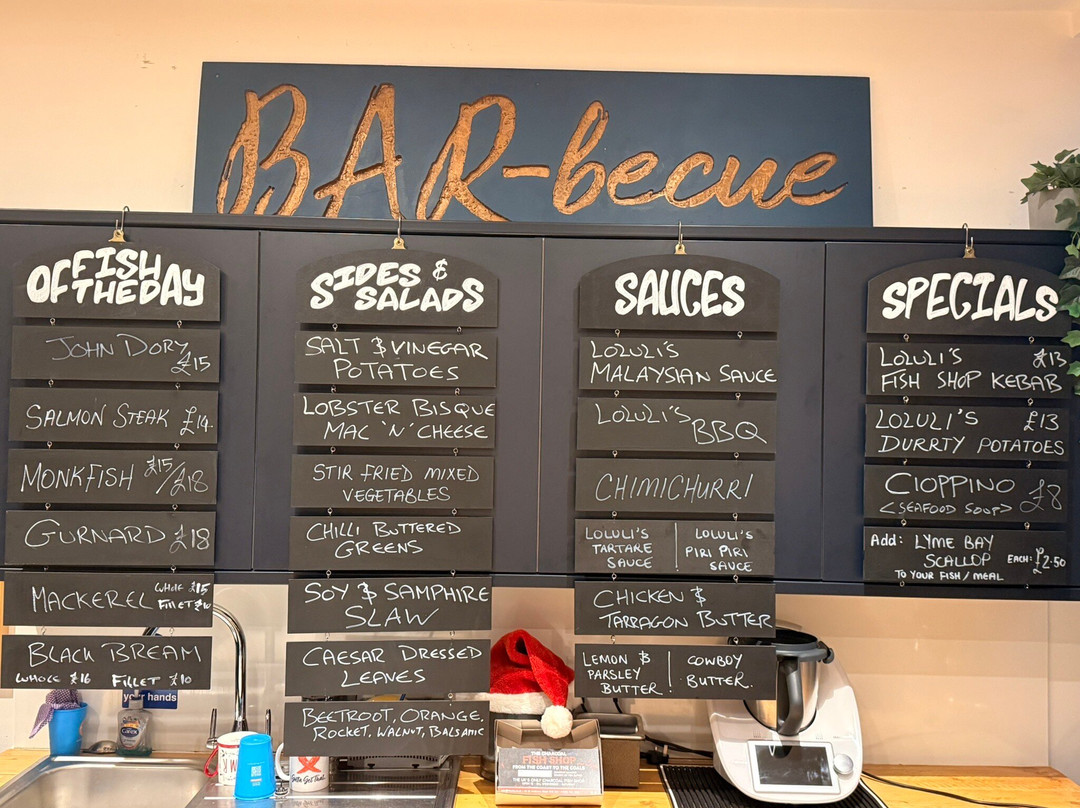 BAR-becue
FISH
OF THE DAY
JOHN DORY
£15
SALMON STEAK £14.
MONKFISH £15/£18
GURNARD £18
MACKEREL WHOLE £15
FILLET
BLACK BREAM
WHOLE £16 FILLET £10
SIDES &
SALADS
SALT & VINEGAR
POTATOES
LOBSTER BISQUE
MAC 'N' CHEESE
STIR FRIED MIXED
VEGETABLES
CHILLI BUTTERED
GREENS
SOY & SAMPHIRE
SLAW
CAESAR DRESSED
LEAVES
BEETROOT, ORANGE,
ROCKET, WALNUT, BALSAMIC
SAUCES
LOLULI'S
MALAYSIAN SAUCE
LOLULI'S
BBQ
CHIMICHURRI
LOLULI'S
TARTARE
SAUCE
LOLULI'S
PIRI PIRI
SAUCE
CHICKEN &
TARRAGON BUTTER
LEMON &
PARSLEY
BUTTER
COWBOY
BUTTER.
SPECIALS
LOLULI'S £13
FISH SHOP KEBAB
LOLULI'S £13
DURRTY POTATOES
CIOPPINO £8
<SEAFOOD SOUP>
Add: LYME BAY
SCALLOP EACH: £2.50
TO YOUR FISH / MEAL
your hands
Carex
Gotta Got That
THE CHARCOAL
FISH SHOP
FROM THE COAST TO THE COALS